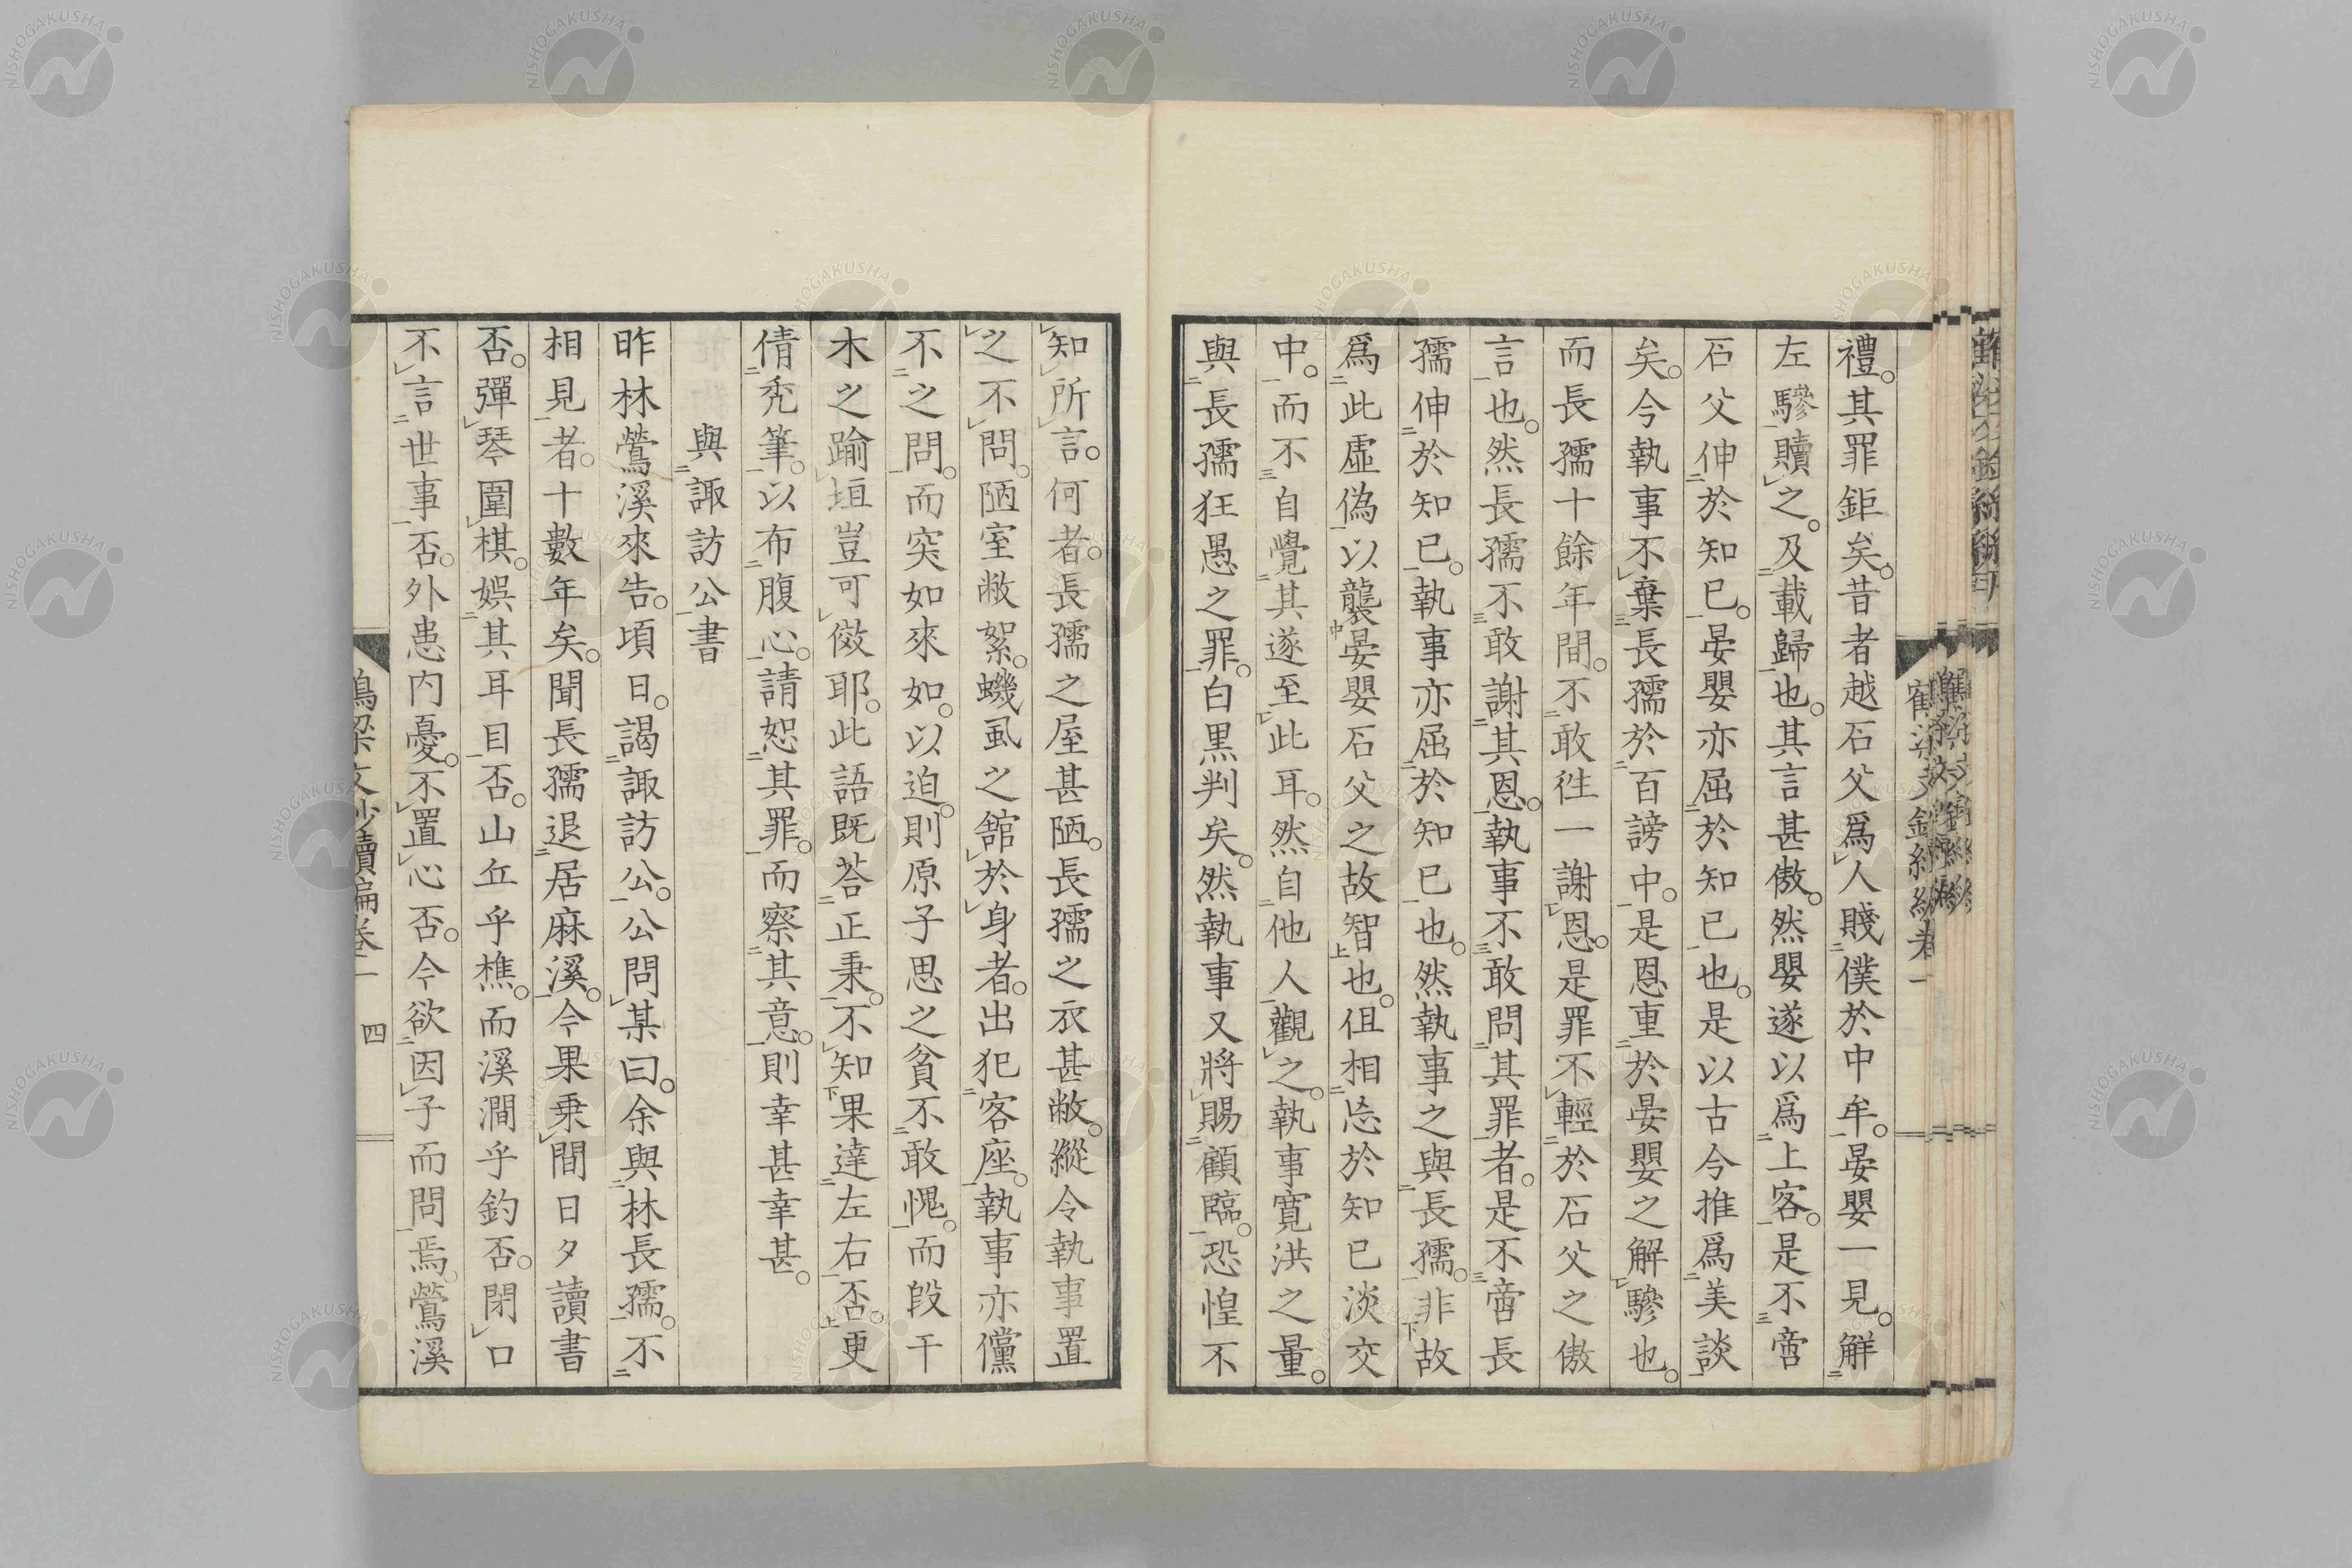 禮。其罪鉅矣。昔者越石父爲人賤僕於中牟。晏嬰一見。解
左驂贖之。及載歸也。其言甚傲。然嬰遂以爲上客。是不啻
石父伸於知已。晏嬰亦屈於知已也。是以古今推爲美談
矣。今執事不棄長孺於百謗中。是恩重於晏嬰之解驂也。
而長孺十餘年間。不敢徃一謝恩。是罪不輕於石父之傲
言也。然長孺不敢謝其恩。執事不敢問其罪者。是不啻長
孺伸於知已。執事亦屈於知已也。然執事之與長孺。非故
爲此虛偽以襲晏嬰石父之故智也。但相忘於知已淡交
中。而不自覺其遂至此耳。然自他人觀之。執事寬洪之量。
與長孺狂愚之罪。白黒判矣。然執事又將賜顧臨。恐惶不
知所言。何者。長孺之屋甚陋。長孺之衣甚敝。縱令執事置
之不問。陋室敝絮。蟣虱之舘於身者。出犯客座。執事亦儻
不之問。而突如來如。以迫。則原子思之貧不敢愧。而段干
木之踰垣豈可傚耶。此語既荅正秉。不知果達左右否。更
倩秃筆。以布腹心。請恕其罪。而察其意。則幸甚幸甚。
與諏訪公書
昨林鶯溪來告。頃日。謁諏訪公。公問某曰。余與林長孺。不
相見者。十數年矣。聞長孺退居麻溪。今果乗間日夕讀書
否。彈琴圍棋。娯其耳目否。山丘乎樵。而溪澗乎釣否。閉口
不言世事否。外患内憂。不置心否。今欲因子而問焉。鶯溪
四